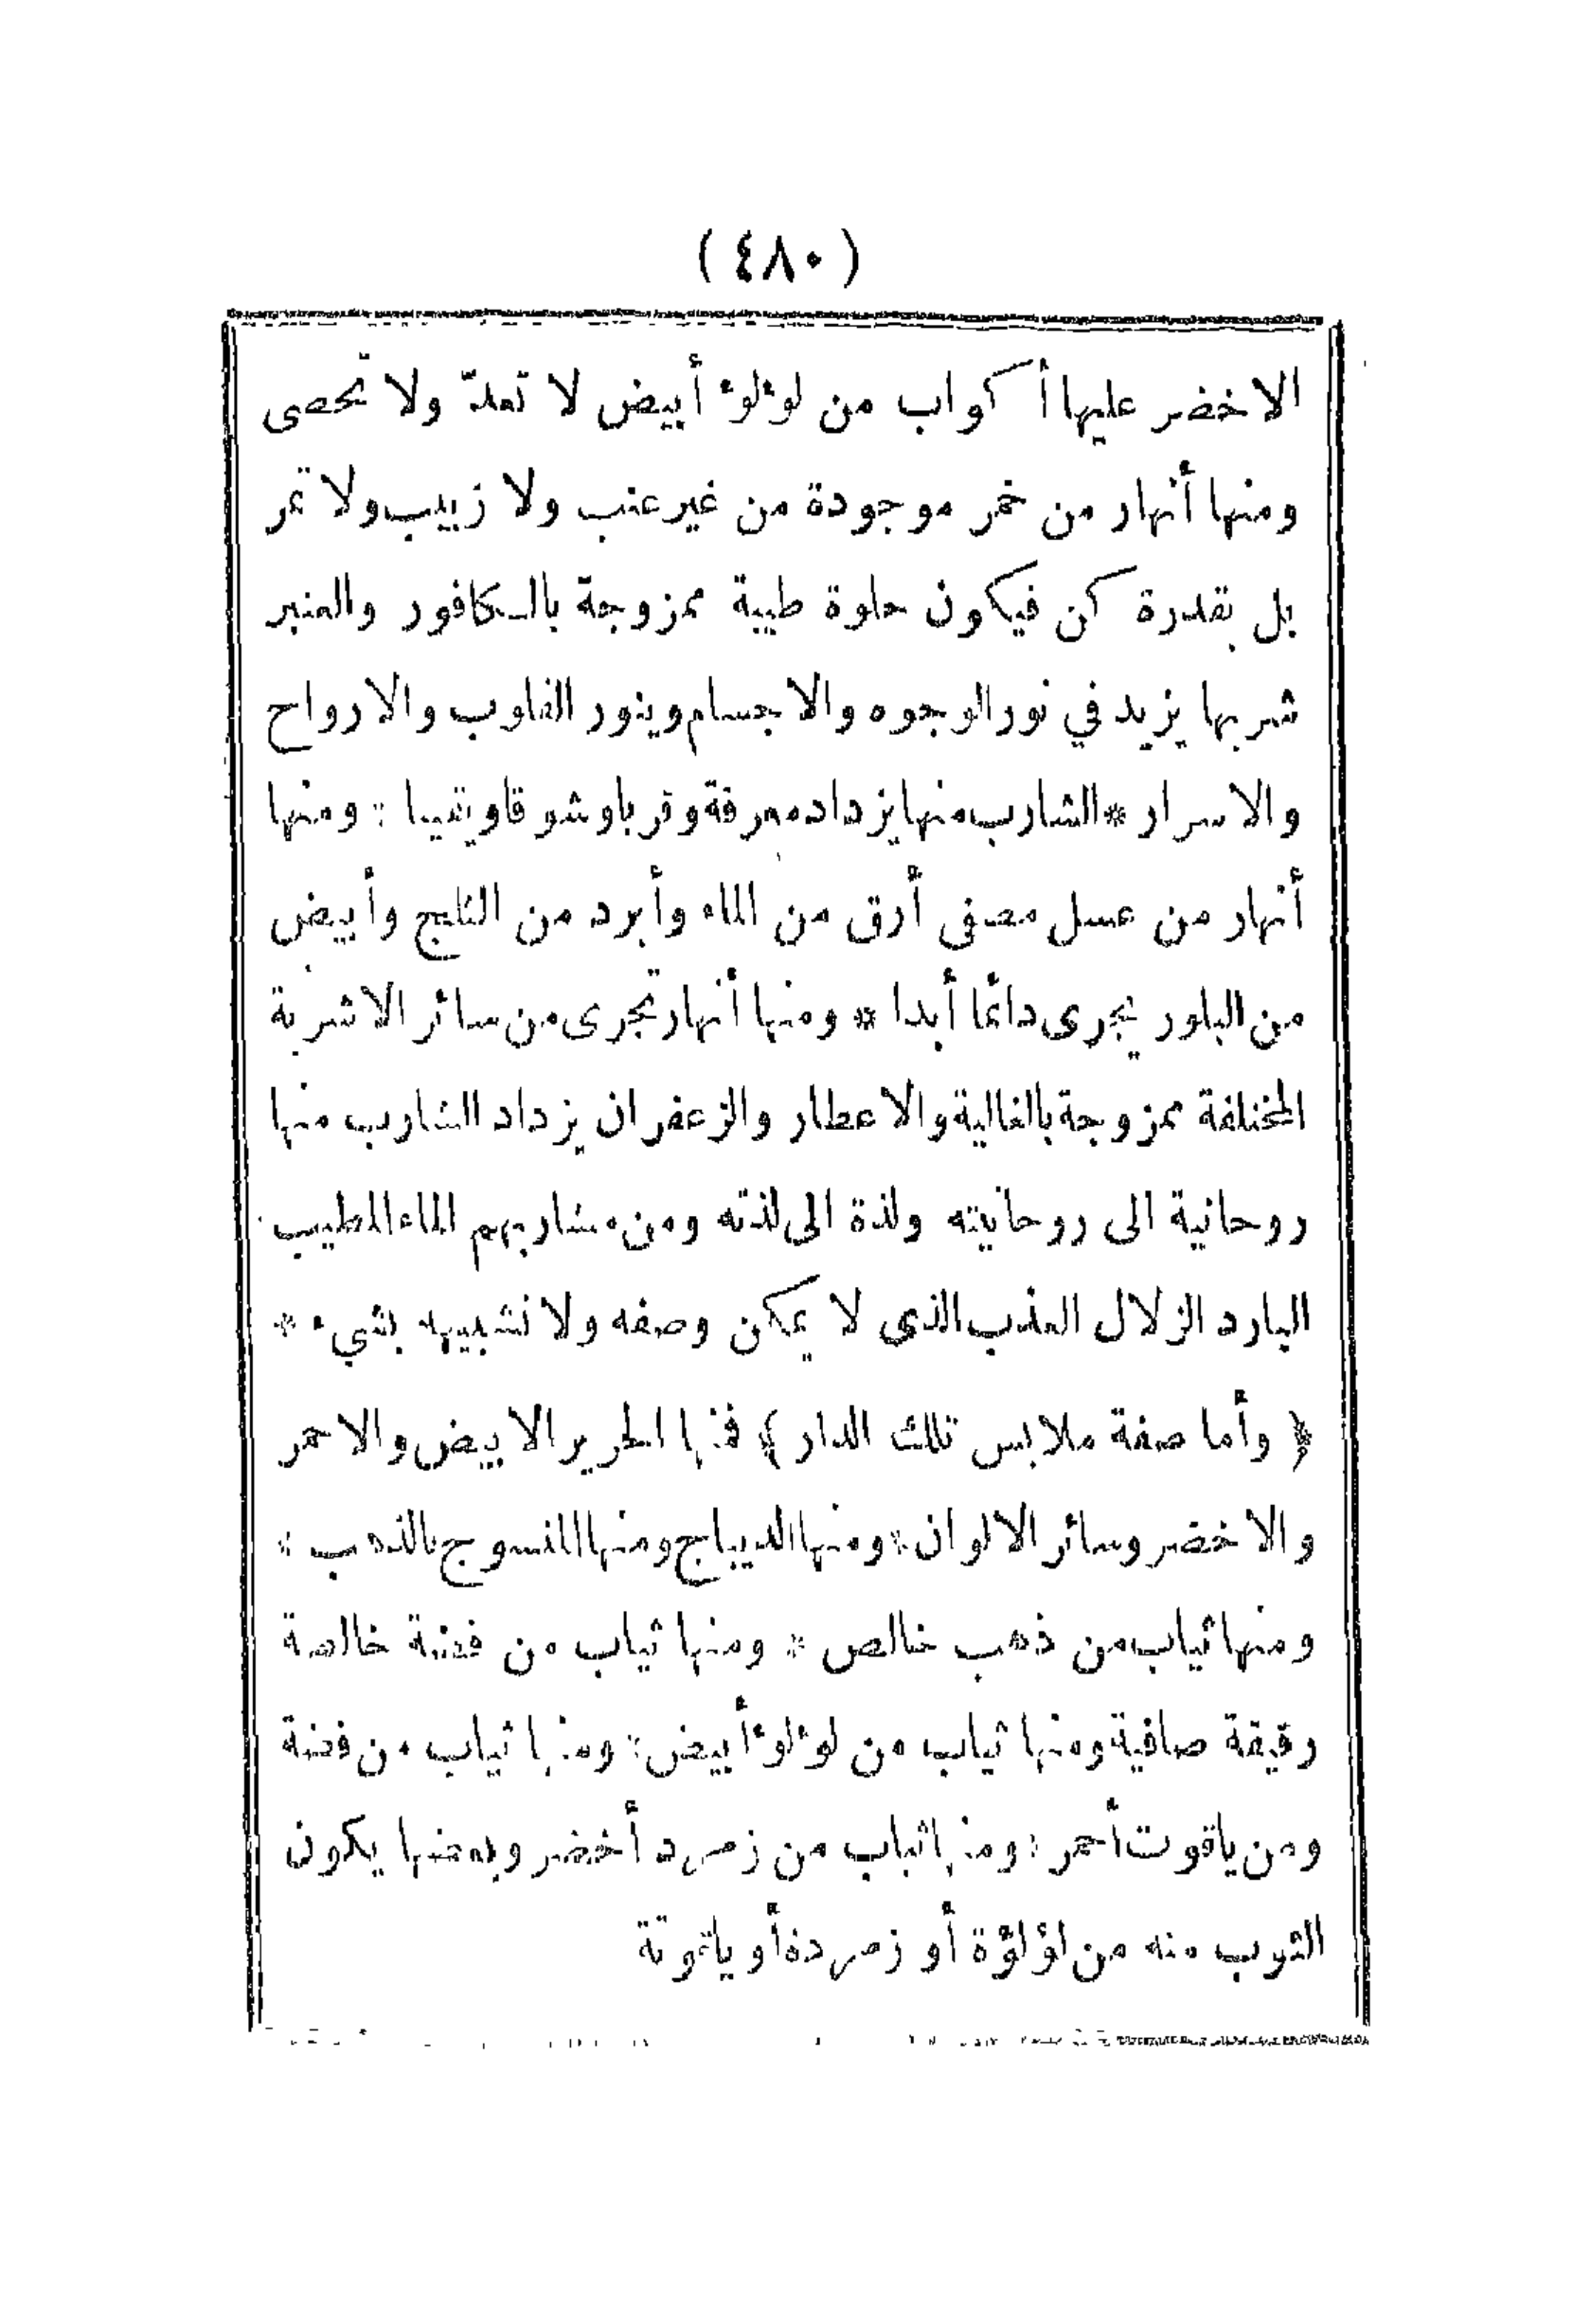 ( ٤٨٠ )
الاخضر عليها أكواب من لوٴلوٴ أبيض لا تعدّ ولا تحصى
ومنها أنهار من خمر موجودة من غير عنب ولا زبيب ولا تمر
بل بقدرة كن فيكون حلوة طيبة ممزوجة بالكافور والعنبر
شربها يزيد في نور الوجوه والاجسام وينور القلوب والارواح
والاسرار * الشارب منها يزداد معرفة وقربا وشوقا ويقينا * ومنها
أنهار من عسل مصفى أرق من الماء وأبرد من الثلج وأبيض
من البلور يجرى دائما أبدا * ومنها أنهار تجرى من سائر الاشربة
المختلفة ممزوجة بالغالية والاعطار والزعفران يزداد الشارب منها
روحانية الى روحانيته ولذة الى لذته ومن مشاربهم الماء المطيب
البارد الزلال العذب الذى لا يمكن وصفه ولا تشبيهه بشيء *
﴿ وأما صفة ملابس تلك الدار ﴾ فمنها الحرير الابيض والاحمر
والاخضر وسائر الالوان * ومنها الديباج ومنها المنسوج بالذهب *
ومنها ثياب من ذهب خالص * ومنها ثياب من فضة خالصة
رقيقة صافية ومنها ثياب من لوٴلوٴ أبيض * ومنها ثياب من فضة
ومن ياقوت أحمر * ومنها ثياب من زمرد أخضر وبعضها يكون
الثوب منه من لؤلؤة أو زمردة أو ياقوتة